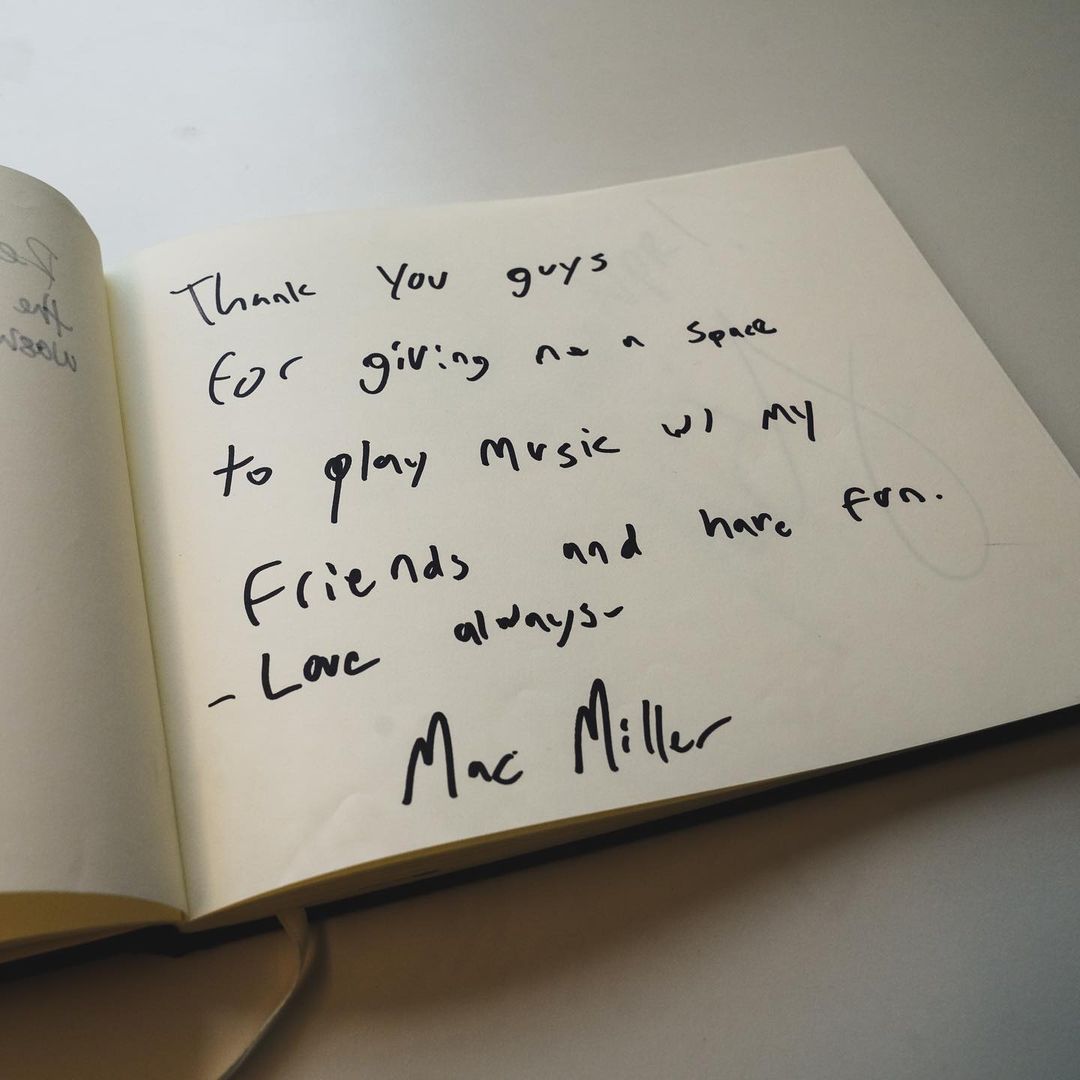 Thank You guys
For giving me a space
to play music w/ my
Friends and have fun.
- Love always -
Mac Miller